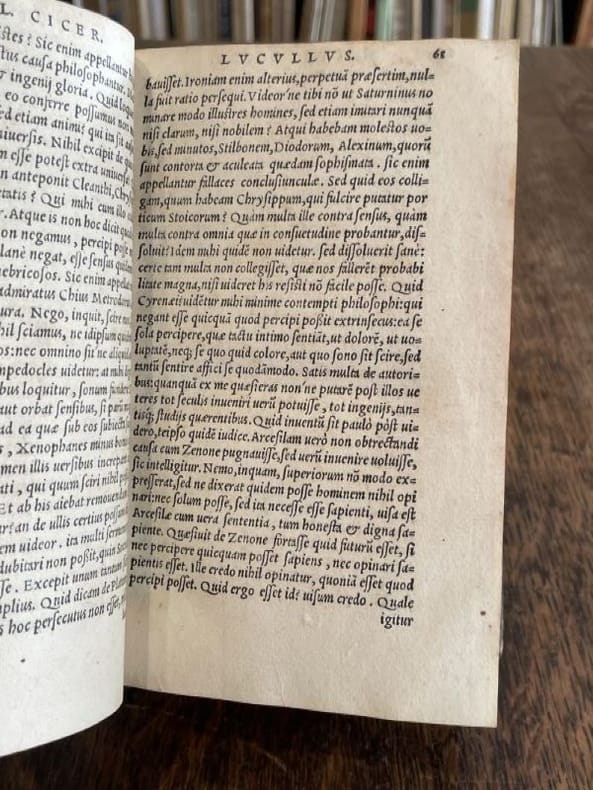 L. CICER.
stes? Sic enim appellantur
tus causa philosophantur.
ingenij gloria. Quid
eo conferre possumus non
ed etiam animus qui ita sit
niuersis. Nihil excipit de
m esse potest extra
n anteponit Cleanthi, Chry
tatis? Qui mihi cum illo
. Atque is non hoc dicit
on negamus, percipi posse
lanè negat, esse sensus
nebricosos. Sic enim
admiratus Chius Metrodorus
ura. Nego, inquit, scire
hil sciamus, ne id ipsum
os: nec omnino sit'ne aliquid
mpedocles uidetur: at mihi
bus loquitur, sonum fundere
aut orbat sensibus, si parum
ad ea quæ sub eos subiecta
s, Xenophanes minus bonis
men illis uersibus increpant
ati, qui quum sciri nihil
Et ab his aiebat remouendum
ur: an de ullis certius possum
em uideor. ita multi sermones
dubitari non poßit, quin Socrati
sse. Excepit unum tantum
mplius. Quid dicam de Platone
s hoc persecutus non esset,
LVCVLLVS. 68
bauisset. Ironiam enim alterius, perpetuā præsertim, nul=
la fuit ratio persequi. Videor'ne tibi nō ut Saturninus no
minare modo illustres homines, sed etiam imitari nunquā
nisi clarum, nisi nobilem? Atqui habebam molestos uo=
bis, sed minutos, Stilbonem, Diodorum, Alexinum, quorū
sunt contorta & aculeata quædam sophismata. sic enim
appellantur fallaces conclusiunculæ. Sed quid eos colli=
gam, quum habeam Chrysippum, qui fulcire putatur por
ticum Stoicorum? Quàm multa ille contra sensus, quàm
multa contra omnia quæ in consuetudine probantur, dis=
soluit? Idem mihi quidē non uidetur. sed dissoluerit sanè:
certè tam multa non collegisset, quæ nos fallerēt probabi
litate magna, nisi uideret his resisti nō facile posse. Quid
Cyrenæi? uidētur mihi minime contempti philosophi: qui
negant esse quicquā quod percipi poßit extrinsecus: ea se
sola percipere, quæ tactu intimo sentiāt, ut dolorē, ut uo=
luptatē, neq; se quo quid colore, aut quo sono sit scire, sed
tantū sentire affici se quodāmodo. Satis multa de autori=
bus: quanquā ex me quæsieras non'ne putarē post illos ue
teres tot seculis inueniri uerū potuisse, tot ingenijs, tan=
tisq; studijs quærentibus. Quid inuentū sit paulò pòst ui=
dero, teipso quidē iudice. Arcesilam uerò non obtrectandi
causa cum Zenone pugnauisse, sed uerū inuenire uoluisse,
sic intelligitur. Nemo, inquam, superiorum nō modo ex=
presserat, sed ne dixerat quidem posse hominem nihil opi
nari: nec solum posse, sed ita necesse esse sapienti, uisa est
Arcesilæ cum uera sententia, tum honesta & digna sa=
piente. Quæsiuit de Zenone fortasse quid futurū esset, si
nec percipere quicquam posset sapiens, nec opinari sa=
pientis esset. Ille credo nihil opinatur, quoniā esset quod
percipi posset. Quid ergo esset id? uisum credo. Quale
igitur